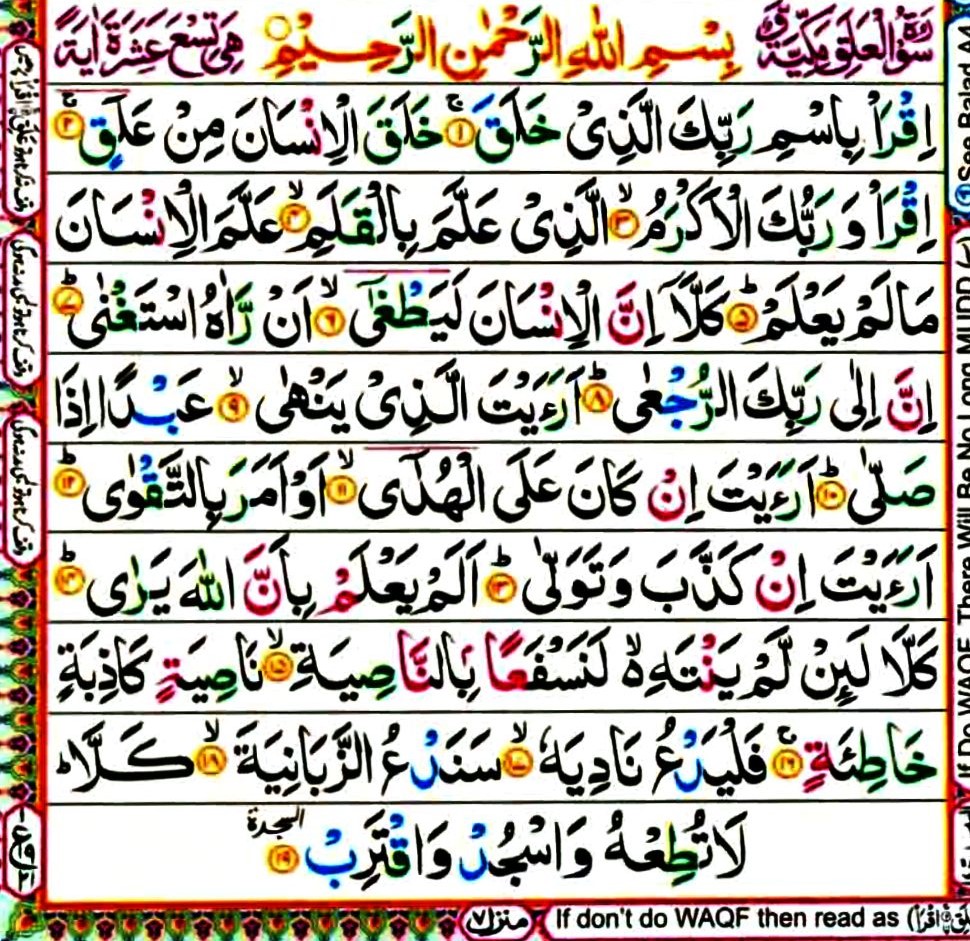 سُوْرَةُ الْعَلَقِ مَكِّيَّةٌ بِسْمِ اللّٰهِ الرَّحْمٰنِ الرَّحِيْمِ هِىَ تِسْعَ عَشْرَةَ اٰيَةً
اِقْرَاْ بِاسْمِ رَبِّكَ الَّذِىْ خَلَقَ ۚ ﴿۱﴾ خَلَقَ الْاِنْسَانَ مِنْ عَلَقٍ ۚ ﴿۲﴾
اِقْرَاْ وَ رَبُّكَ الْاَكْرَمُ ۙ ﴿۳﴾ الَّذِىْ عَلَّمَ بِالْقَلَمِ ۙ ﴿۴﴾ عَلَّمَ الْاِنْسَانَ
مَا لَمْ يَعْلَمْ ؕ ﴿۵﴾ كَلَّاۤ اِنَّ الْاِنْسَانَ لَيَطْغٰٓى ۙ ﴿۶﴾ اَنْ رَّاٰهُ اسْتَغْنٰى ؕ ﴿۷﴾
اِنَّ اِلٰى رَبِّكَ الرُّجْعٰى ؕ ﴿۸﴾ اَرَءَيْتَ الَّذِىْ يَنْهٰى ۙ ﴿۹﴾ عَبْدًا اِذَا
صَلّٰى ؕ ﴿۱۰﴾ اَرَءَيْتَ اِنْ كَانَ عَلَى الْهُدٰٓى ۙ ﴿۱۱﴾ اَوْ اَمَرَ بِالتَّقْوٰى ؕ ﴿۱۲﴾
اَرَءَيْتَ اِنْ كَذَّبَ وَتَوَلّٰى ؕ ﴿۱۳﴾ اَلَمْ يَعْلَمْ بِاَنَّ اللّٰهَ يَرٰى ؕ ﴿۱۴﴾
كَلَّا لَئِنْ لَّمْ يَنْتَهِ ۙ۬ لَنَسْفَعًۢا بِالنَّاصِيَةِ ۙ ﴿۱۵﴾ نَاصِيَةٍ كَاذِبَةٍ
خَاطِئَةٍ ۚ ﴿۱۶﴾ فَلْيَدْعُ نَادِيَهٗ ۙ ﴿۱۷﴾ سَنَدْعُ الزَّبَانِيَةَ ۙ ﴿۱۸﴾ كَلَّا ؕ
لَا تُطِعْهُ وَاسْجُدْ وَاقْتَرِبْ ﴿۱۹﴾ السجدة
منزل ۷
If don't do WAQF then read as
See Balad A4
If Do WAQF, There Will Be No Long MUDD